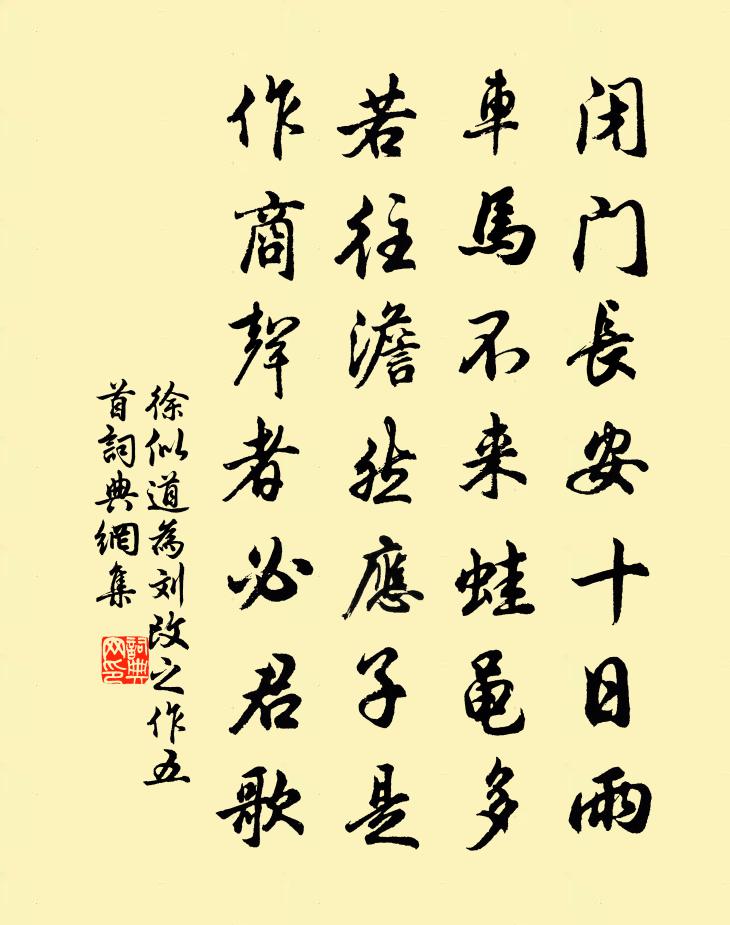 闭门長安十日雨
車馬不来蛙黾多
若往澹然應子是
作商聲者必君歌
徐似道為刘改之作五
首詞典網集
詞典
网印